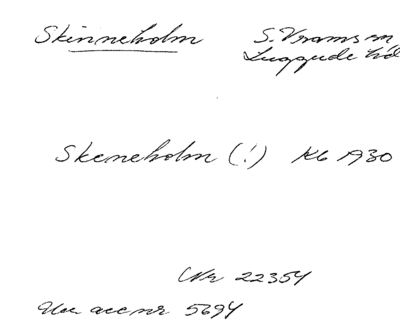 Skinneholm S. Vrams sn
Luggude hd
Skeneholm (!) Kb 1930
Nr 22354
Um acc nr 5694